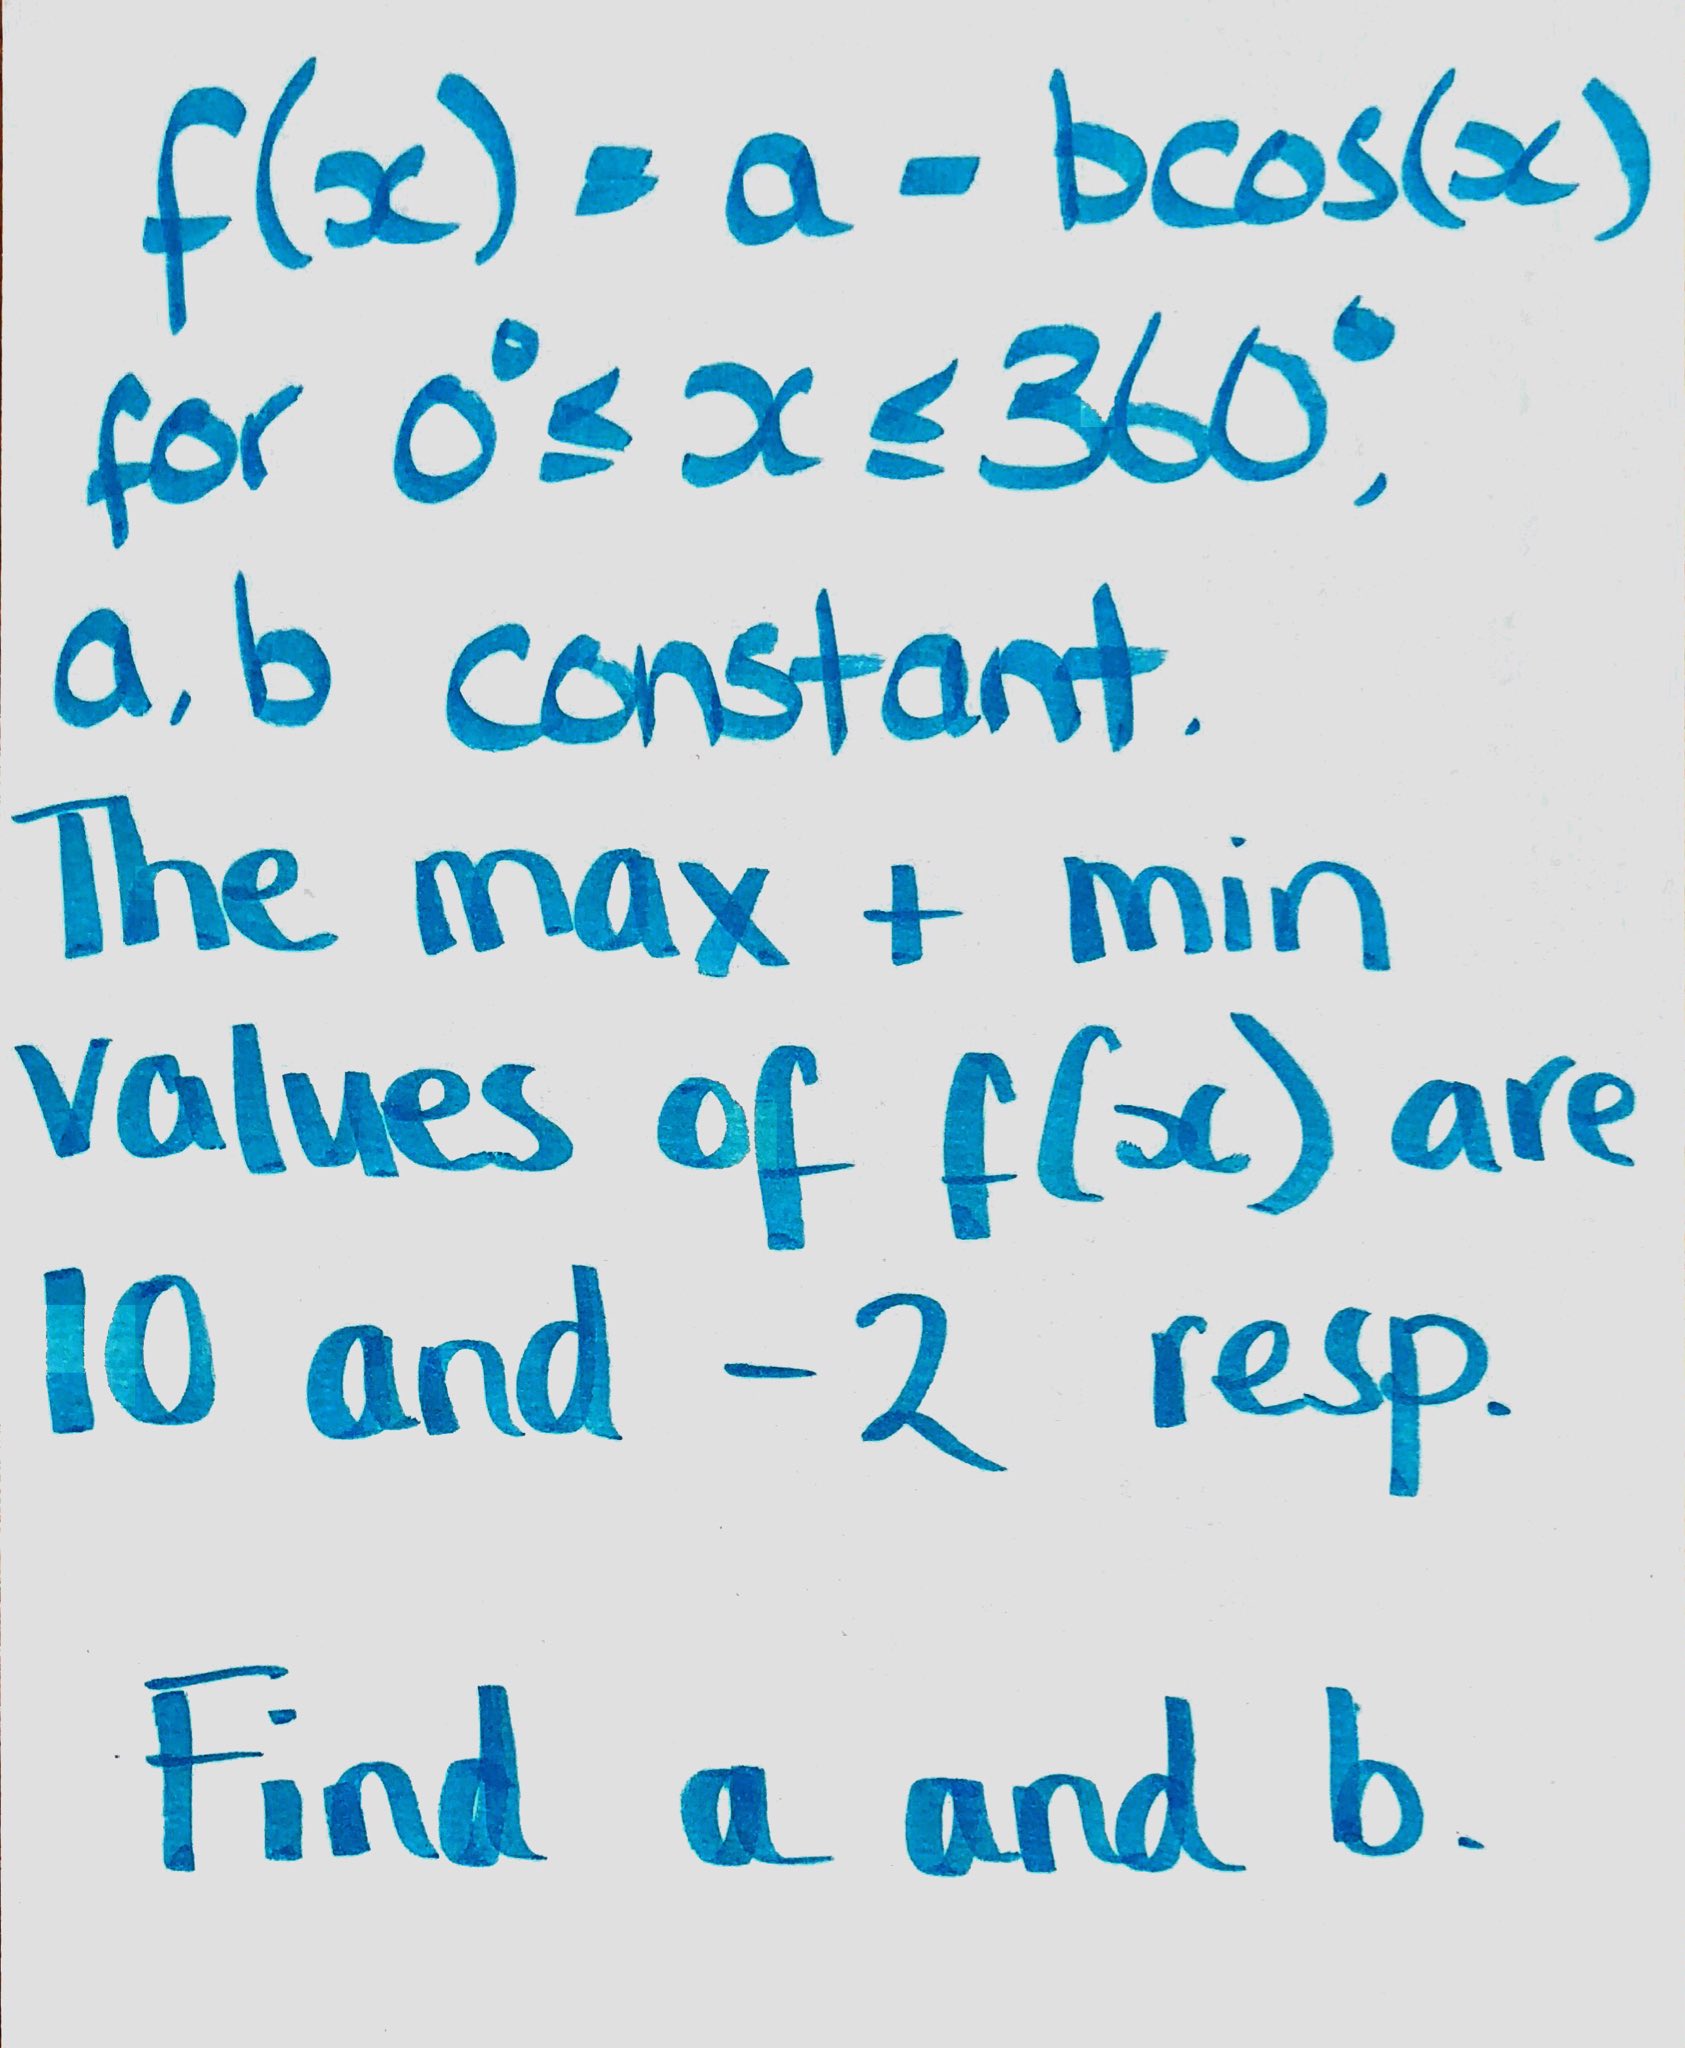 f(x) = a - bcos(x)
for 0° ≤ x ≤ 360°,
a, b constant.
The max + min
values of f(x) are
10 and -2 resp.
Find a and b.